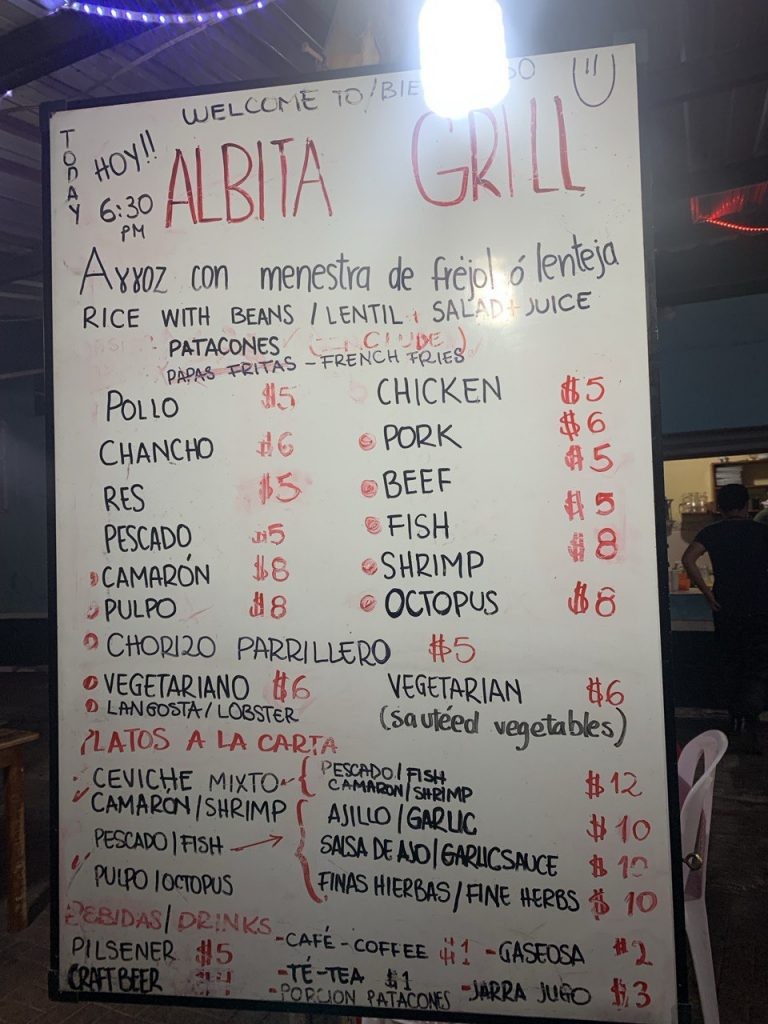 WELCOME TO/BIE DO
TODAY
HOY!!
6:30
PM
ALBITA GRILL
Arroz con menestra de fréjol ó lenteja
RICE WITH BEANS / LENTIL + SALAD + JUICE
PATACONES
PAPAS FRITAS - FRENCH FRIES
POLLO $5 CHICKEN $5
CHANCHO $6 PORK $6
RES $5 BEEF $5
PESCADO $5 FISH $5
CAMARÓN $8 SHRIMP $8
PULPO $8 OCTOPUS $8
CHORIZO PARRILLERO $5
VEGETARIANO $6 VEGETARIAN $6
LANGOSTA/LOBSTER (sautéed vegetables)
PLATOS A LA CARTA
CEVICHE MIXTO { PESCADO/FISH
CAMARON/SHRIMP $12
CAMARON/SHRIMP { AJILLO/GARLIC $10
PESCADO/FISH → SALSA DE AJO/GARLIC SAUCE $10
PULPO/OCTOPUS FINAS HIERBAS/FINE HERBS $10
BEBIDAS/DRINKS
PILSENER $5 -CAFÉ-COFFEE $1 -GASEOSA $2
CRAFT BEER -TÉ-TEA $1
-PORCION PATACONES -JARRA JUGO $3